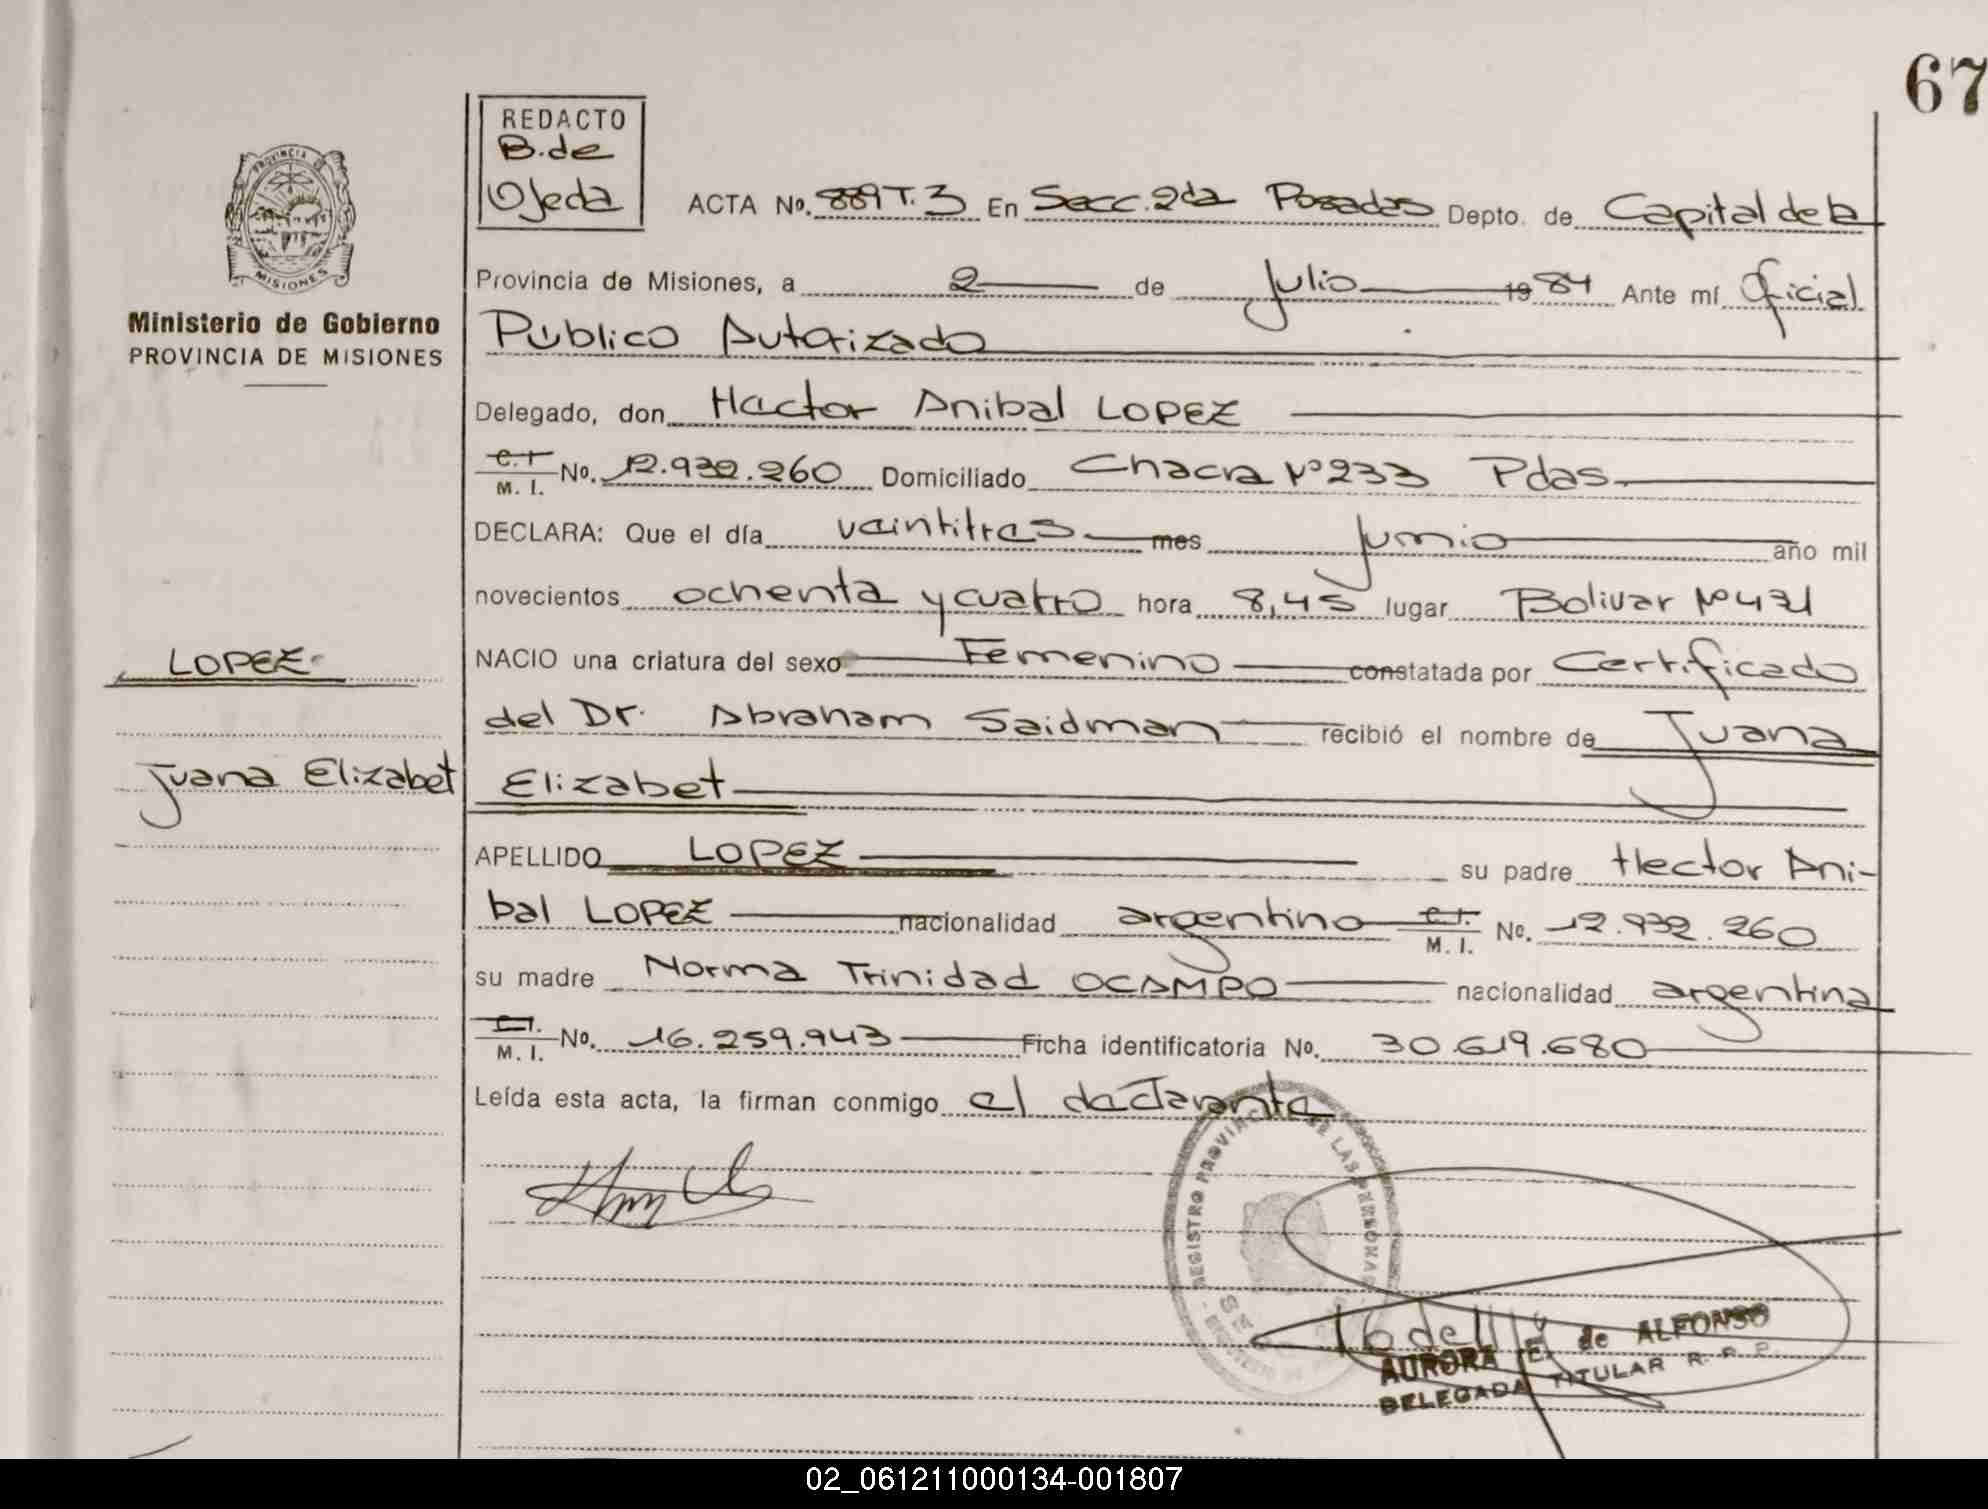 67
REDACTO
B. de
Ojeda
PROVINCIA DE
MISIONES
Ministerio de Gobierno
PROVINCIA DE MISIONES
ACTA No. 889 T. 3 En Secc. 2da Posadas Depto. de Capital de la
Provincia de Misiones, a 2 de Julio 1984 Ante mí Oficial
Público Autorizado
Delegado, don Hector Anibal LOPEZ
C.I. M. I. No. 12.932.260 Domiciliado Chacra Nº 233 Pdas.
DECLARA: Que el día veintitres mes Junio año mil
novecientos ochenta y cuatro hora 8,45 lugar Bolivar Nº 431
LOPEZ
NACIO una criatura del sexo Femenino constatada por Certificado
del Dr. Abraham Saidman recibió el nombre de Juana
Juana Elizabet
Elizabet
APELLIDO LOPEZ su padre Hector Ani-
bal LOPEZ nacionalidad argentino C.I. M. I. No. 12.932.260
su madre Norma Trinidad OCAMPO nacionalidad argentina
C.I. M. I. No. 16.259.943 Ficha identificatoria No. 30.619.680
Leída esta acta, la firman conmigo el declarante
REGISTRO PROVINCIAL DE LAS PERSONAS
AURORA E. de ALFONSO
DELEGADA TITULAR R. P. P.
02_061211000134-001807